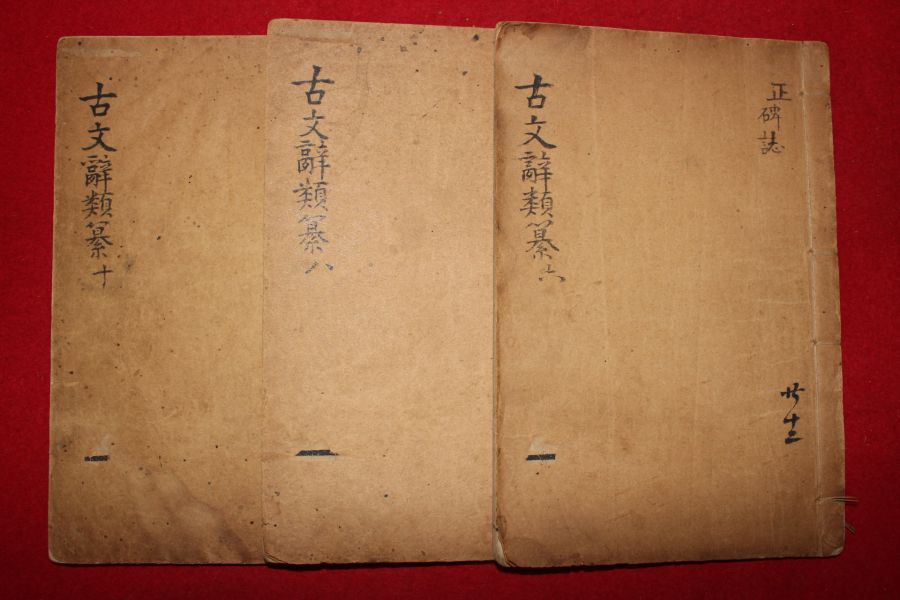 正碑誌
卄十二
古文辭類纂六
古文辭類纂八
古文辭類纂十